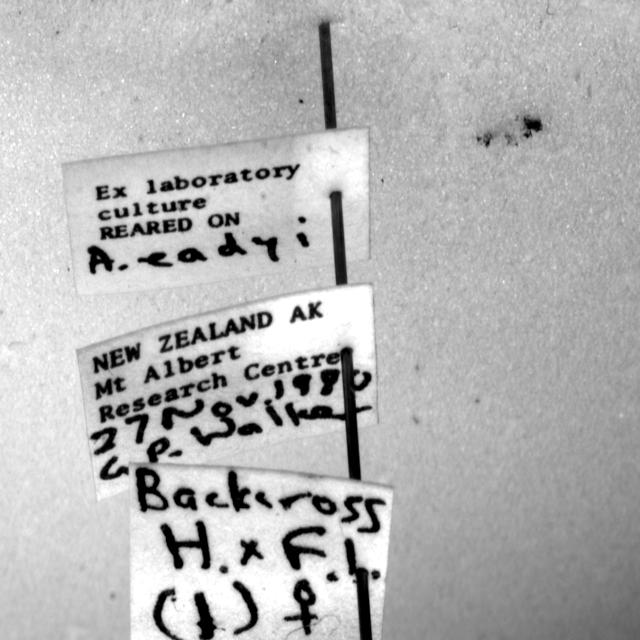 Ex laboratory
culture
REARED ON
A. eadyi
NEW ZEALAND AK
Mt Albert
Research Centre
27 1980
G. P.
Backcross
H. x F1.
(1) ♀